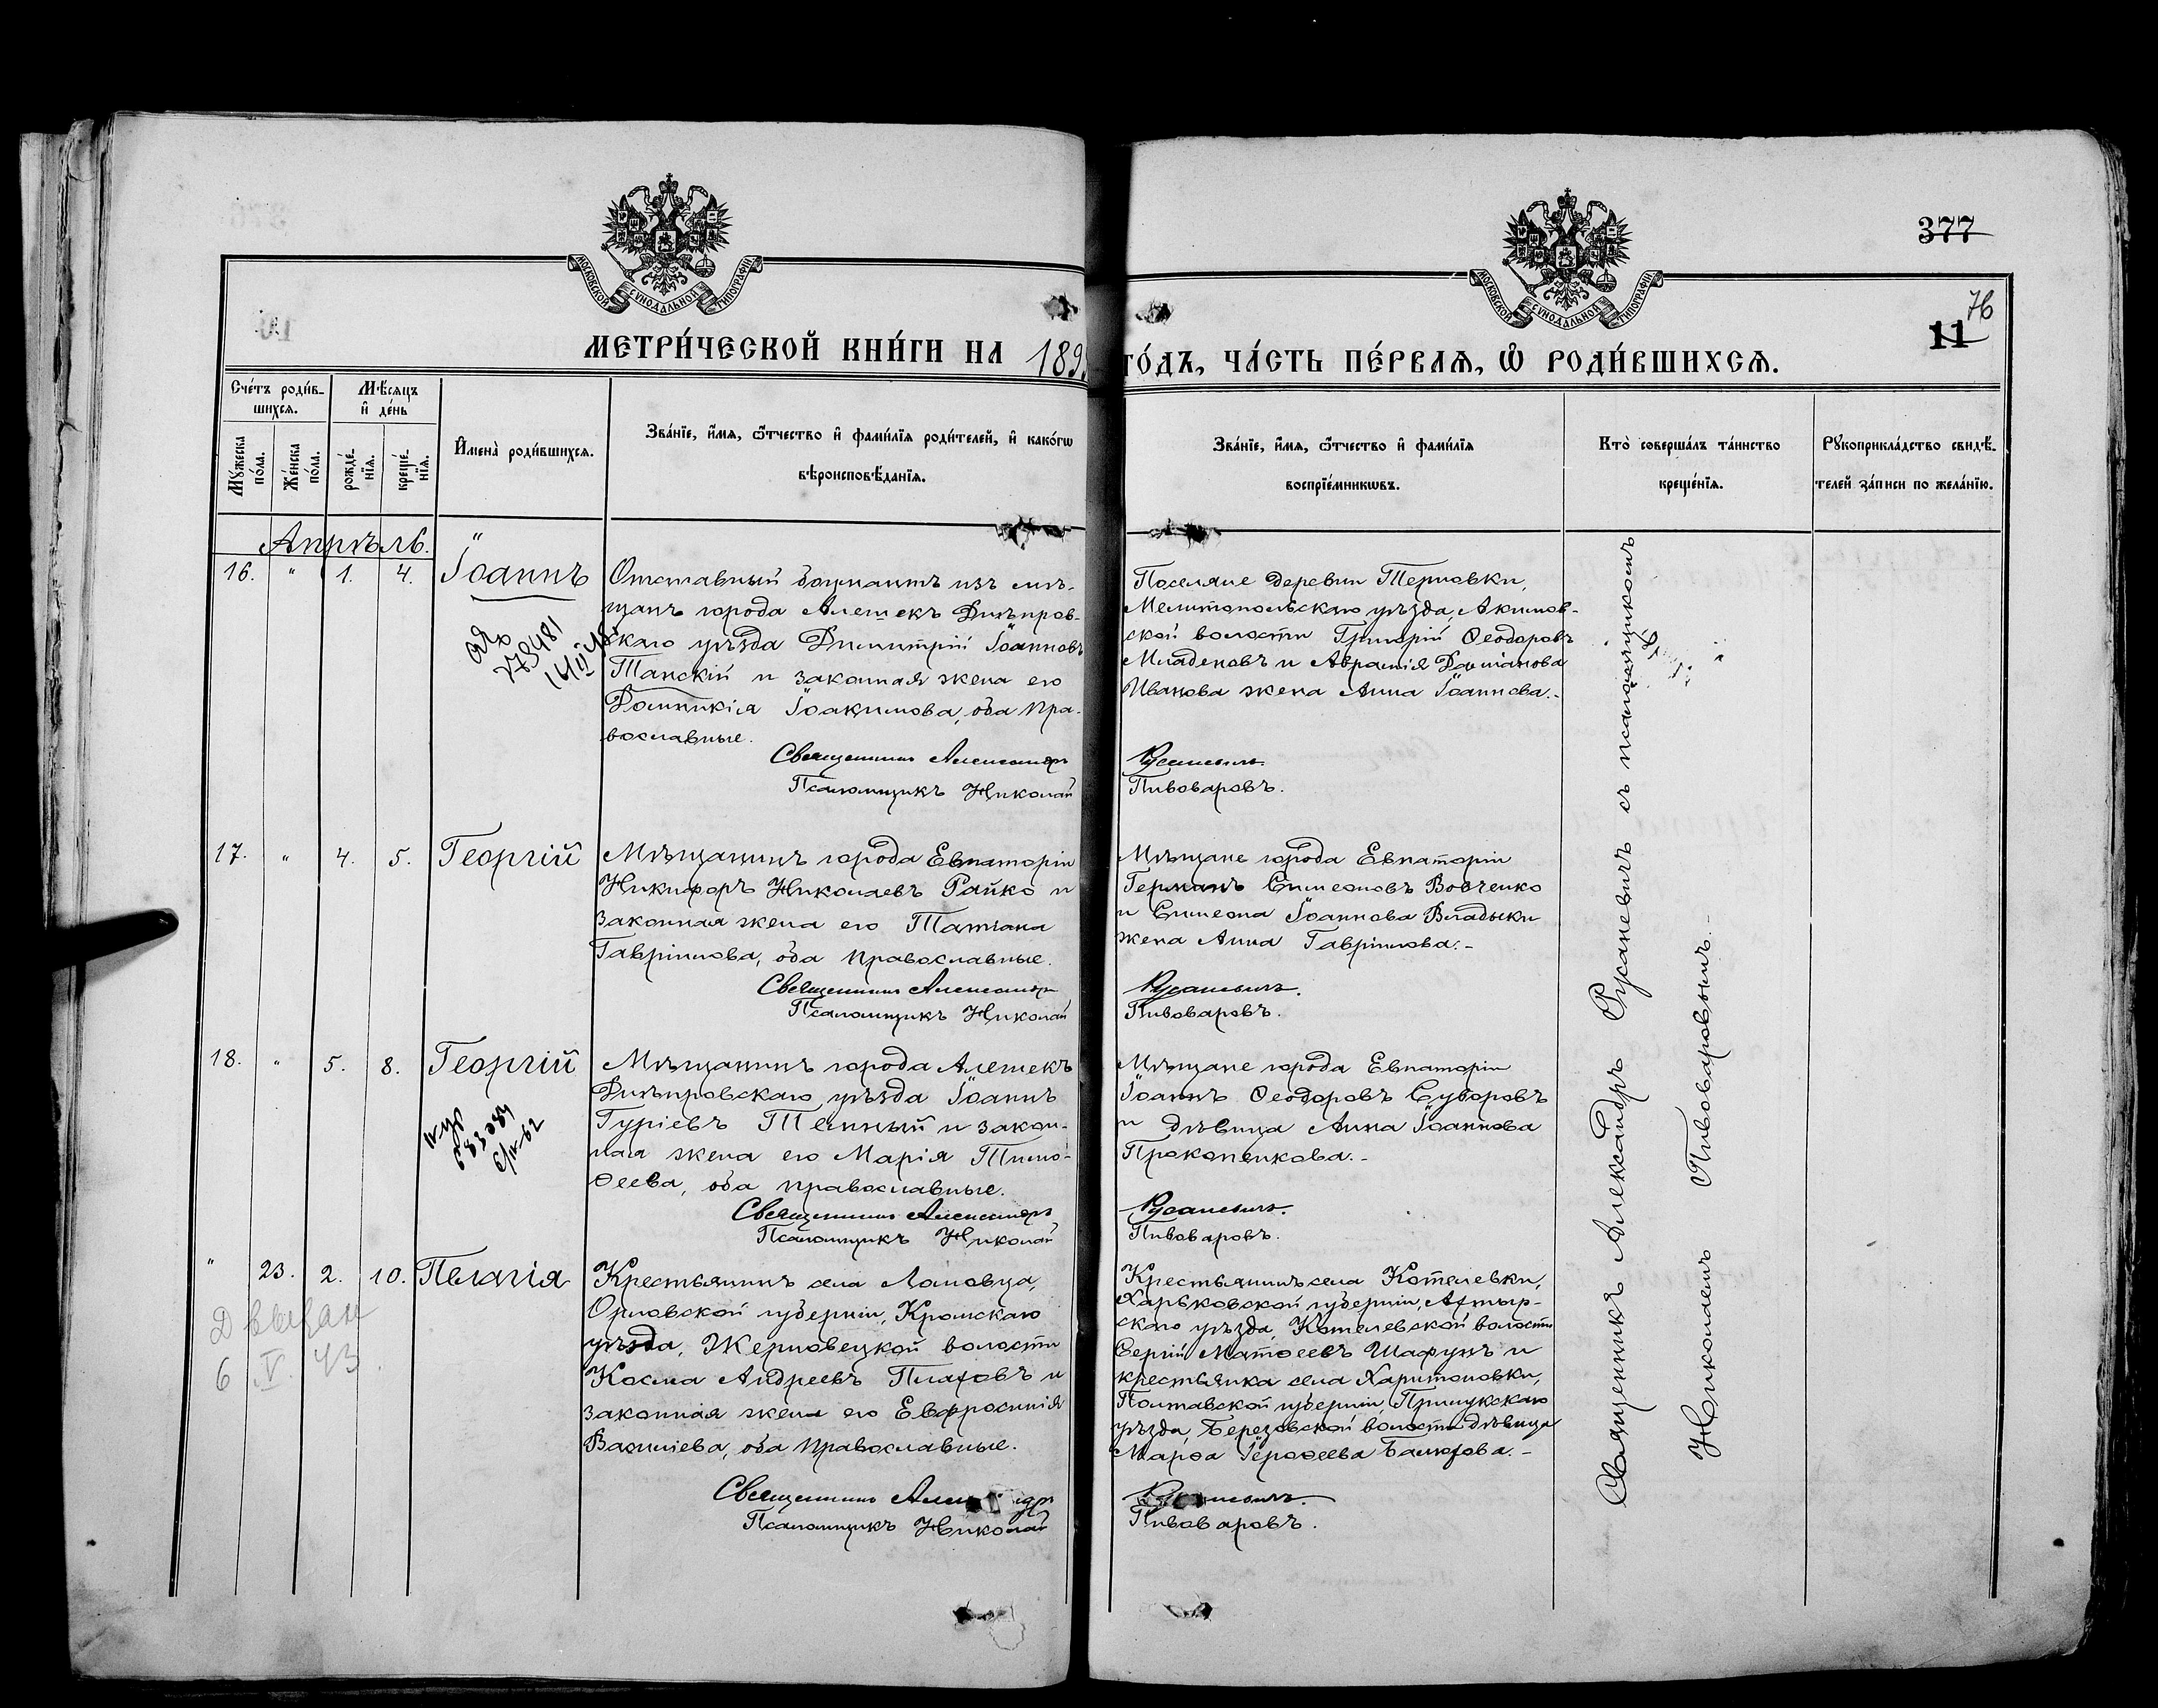 377
76
11
МОСКОВСКОЙ СУНОДАЛЬНОЙ ТИПОГРАФІИ
МОСКОВСКОЙ СУНОДАЛЬНОЙ ТИПОГРАФІИ
МЕТРИ́ЧЕСКОЙ КНИ́ГИ НА 189
ГО́ДЪ, ЧА́СТЬ ПЕ́РВАѦ, Ѡ҆ РОДИ́ВШИХСѦ.
Сче́тъ роди́в-
шихсѧ.
Мѣ́сѧцъ
и҆ де́нь
Мꙋжеска по́ла.
Же́нска по́ла.
рожде́-
нїѧ.
креще́-
нїѧ.
И҆мена̀ роди́вшихсѧ.
Зва́нїе, и҆́мѧ, ѻ҆́тчество и҆ фами́лїѧ роди́телей, и҆ како́гѡ
вѣроисповѣ́данїѧ.
Зва́нїе, и҆́мѧ, ѻ҆́тчество и҆ фами́лїѧ
воспрїе́мникѡвъ.
Кто̀ соверша́лъ та́инство
креще́нїѧ.
Рꙋкоприкла́дство свидѣ́-
телей за́писи по жела́нїю.
Апрѣль.
16. " 1. 4. Іоаннъ
Отставный боцманъ изъ мѣ-
щанъ города Алешекъ Днѣпров-
скаго уѣзда Димитрій Іоанновъ
Танскій и законная жена его
Домникія Іоакимова, оба пра-
вославные.
Священникъ Александръ
Псаломщикъ Николай
Поселяне деревни Терновки,
Мелитопольскаго уѣзда, Акимов-
ской волости Григорій Ѳеодоровъ
Младеновъ и Авраамія Даміанова
Иванова жена Анна Іоаннова.-
Русаневичъ.
Пивоваровъ.
17. " 4. 5. Георгій
Мѣщанинъ города Евпаторіи
Никифоръ Николаевъ Райко и
законная жена его Татіана
Гавріилова, оба православные.
Священникъ Александръ
Псаломщикъ Николай
Мѣщане города Евпаторіи
Германъ Симеоновъ Вовченко
и Симеона Іоаннова Владыки
жена Анна Гавріилова.-
Русаневичъ.
Пивоваровъ.
18. " 5. 8. Георгій
Мѣщанинъ города Алешекъ
Днѣпровскаго уѣзда Іоаннъ
Гуріевъ Темный и закон-
ная жена его Марія Тимо-
ѳеева, оба православные.
Священникъ Александръ
Псаломщикъ Николай
Мѣщане города Евпаторіи
Іоаннъ Ѳеодоровъ Суворовъ
и дѣвица Анна Іоаннова
Прокопенкова.-
Русаневичъ.
Пивоваровъ.
" 23. 2. 10. Пелагія
6 V 43
Крестьянинъ села Ломовца,
Орловской губерніи, Кромскаго
уѣзда, Жерновецкой волости
Косма Андреевъ Плаховъ и
законная жена его Евфросинія
Василіева, оба православные.
Священникъ Александръ
Псаломщикъ Николай
Крестьянинъ села Котелевки,
Харьковской губерніи, Ахтыр-
скаго уѣзда, Котелевской волости
Сергій Матѳеевъ Шафунъ и
крестьянка села Харитоновки,
Полтавской губерніи, Прилукскаго
уѣзда, Березовской волости дѣвица
Марѳа Ероѳеева
Пивоваровъ.
Священникъ Александръ Русаневичъ съ псаломщикомъ
Николаемъ Пивоваровымъ.